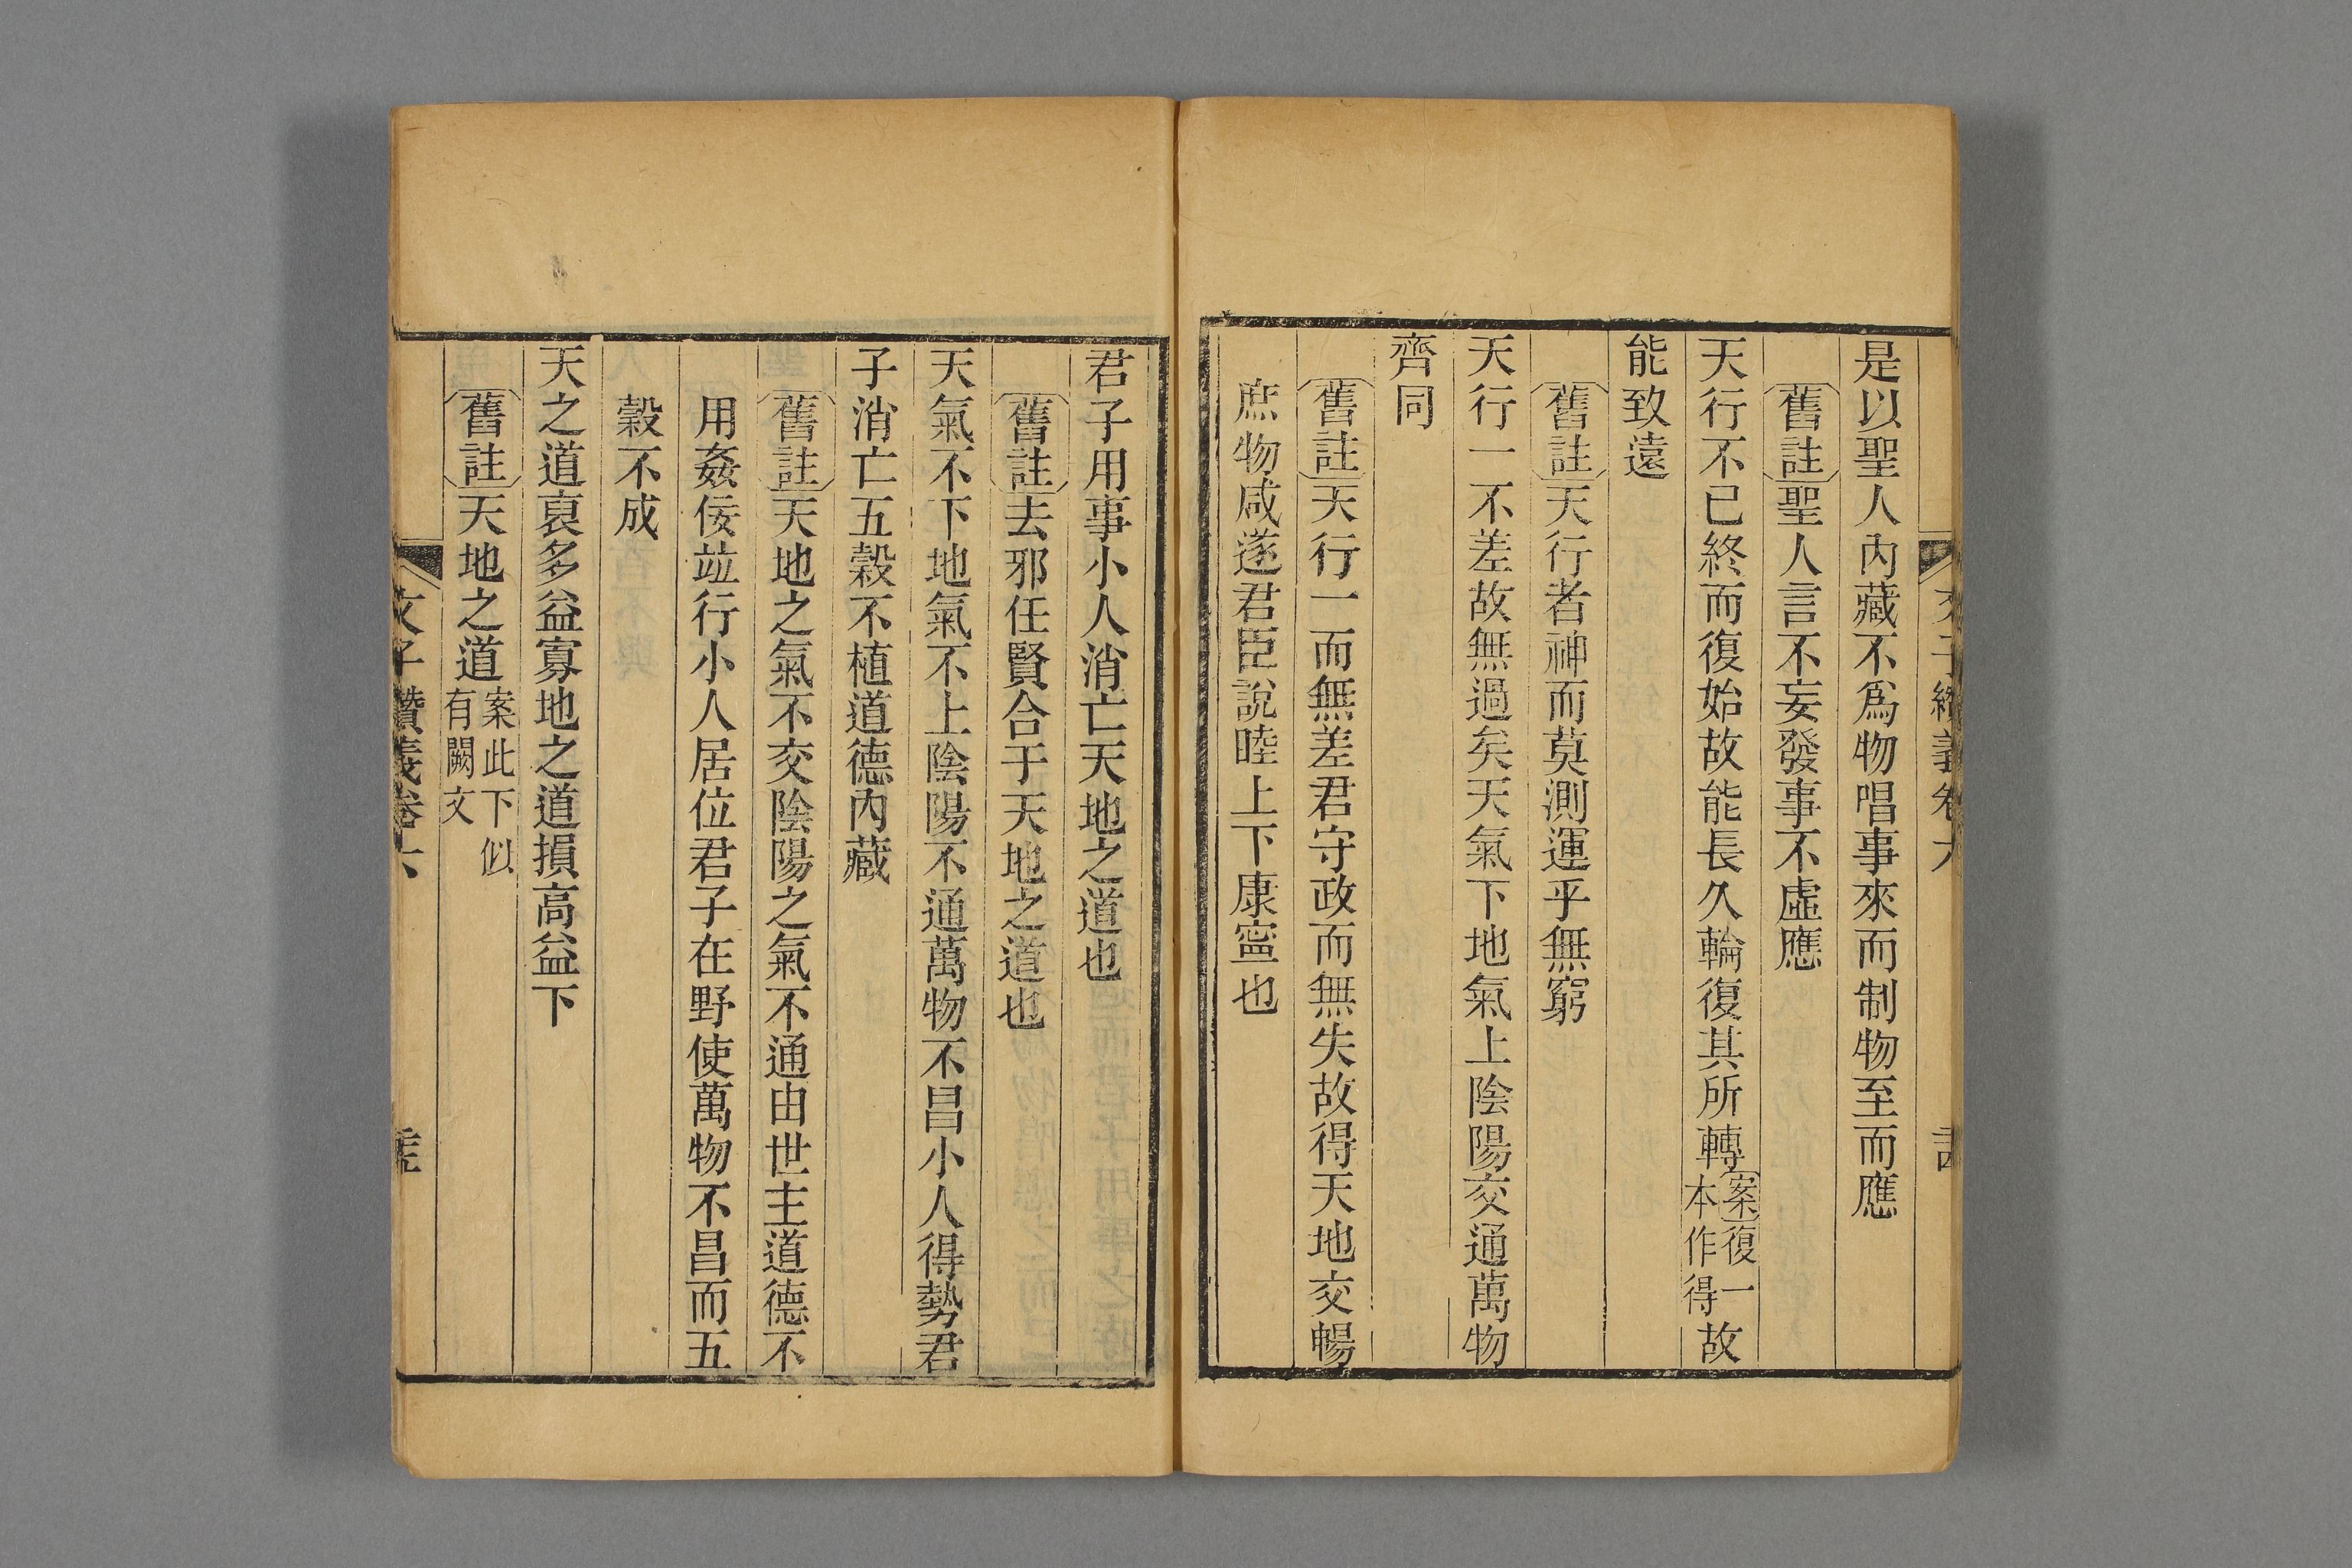 是以聖人內藏不爲物唱事來而制物至而應
舊註聖人言不妄發事不虛應
天行不已終而復始故能長久輪復其所轉案復一本作得故
能致遠
舊註天行者神而莫測運乎無窮
天行一不差故無過矣天氣下地氣上陰陽交通萬物
齊同
舊註天行一而無差君守政而無失故得天地交暢
庶物咸遂君臣說睦上下康寧也
君子用事小人消亡天地之道也
舊註去邪任賢合于天地之道也
天氣不下地氣不上陰陽不通萬物不昌小人得勢君
子消亡五穀不植道德內藏
舊註天地之氣不交陰陽之氣不通由世主道德不
用姦佞竝行小人居位君子在野使萬物不昌而五
穀不成
天之道裒多益寡地之道損高益下
舊註天地之道案此下似有闕文
文子纘義卷六